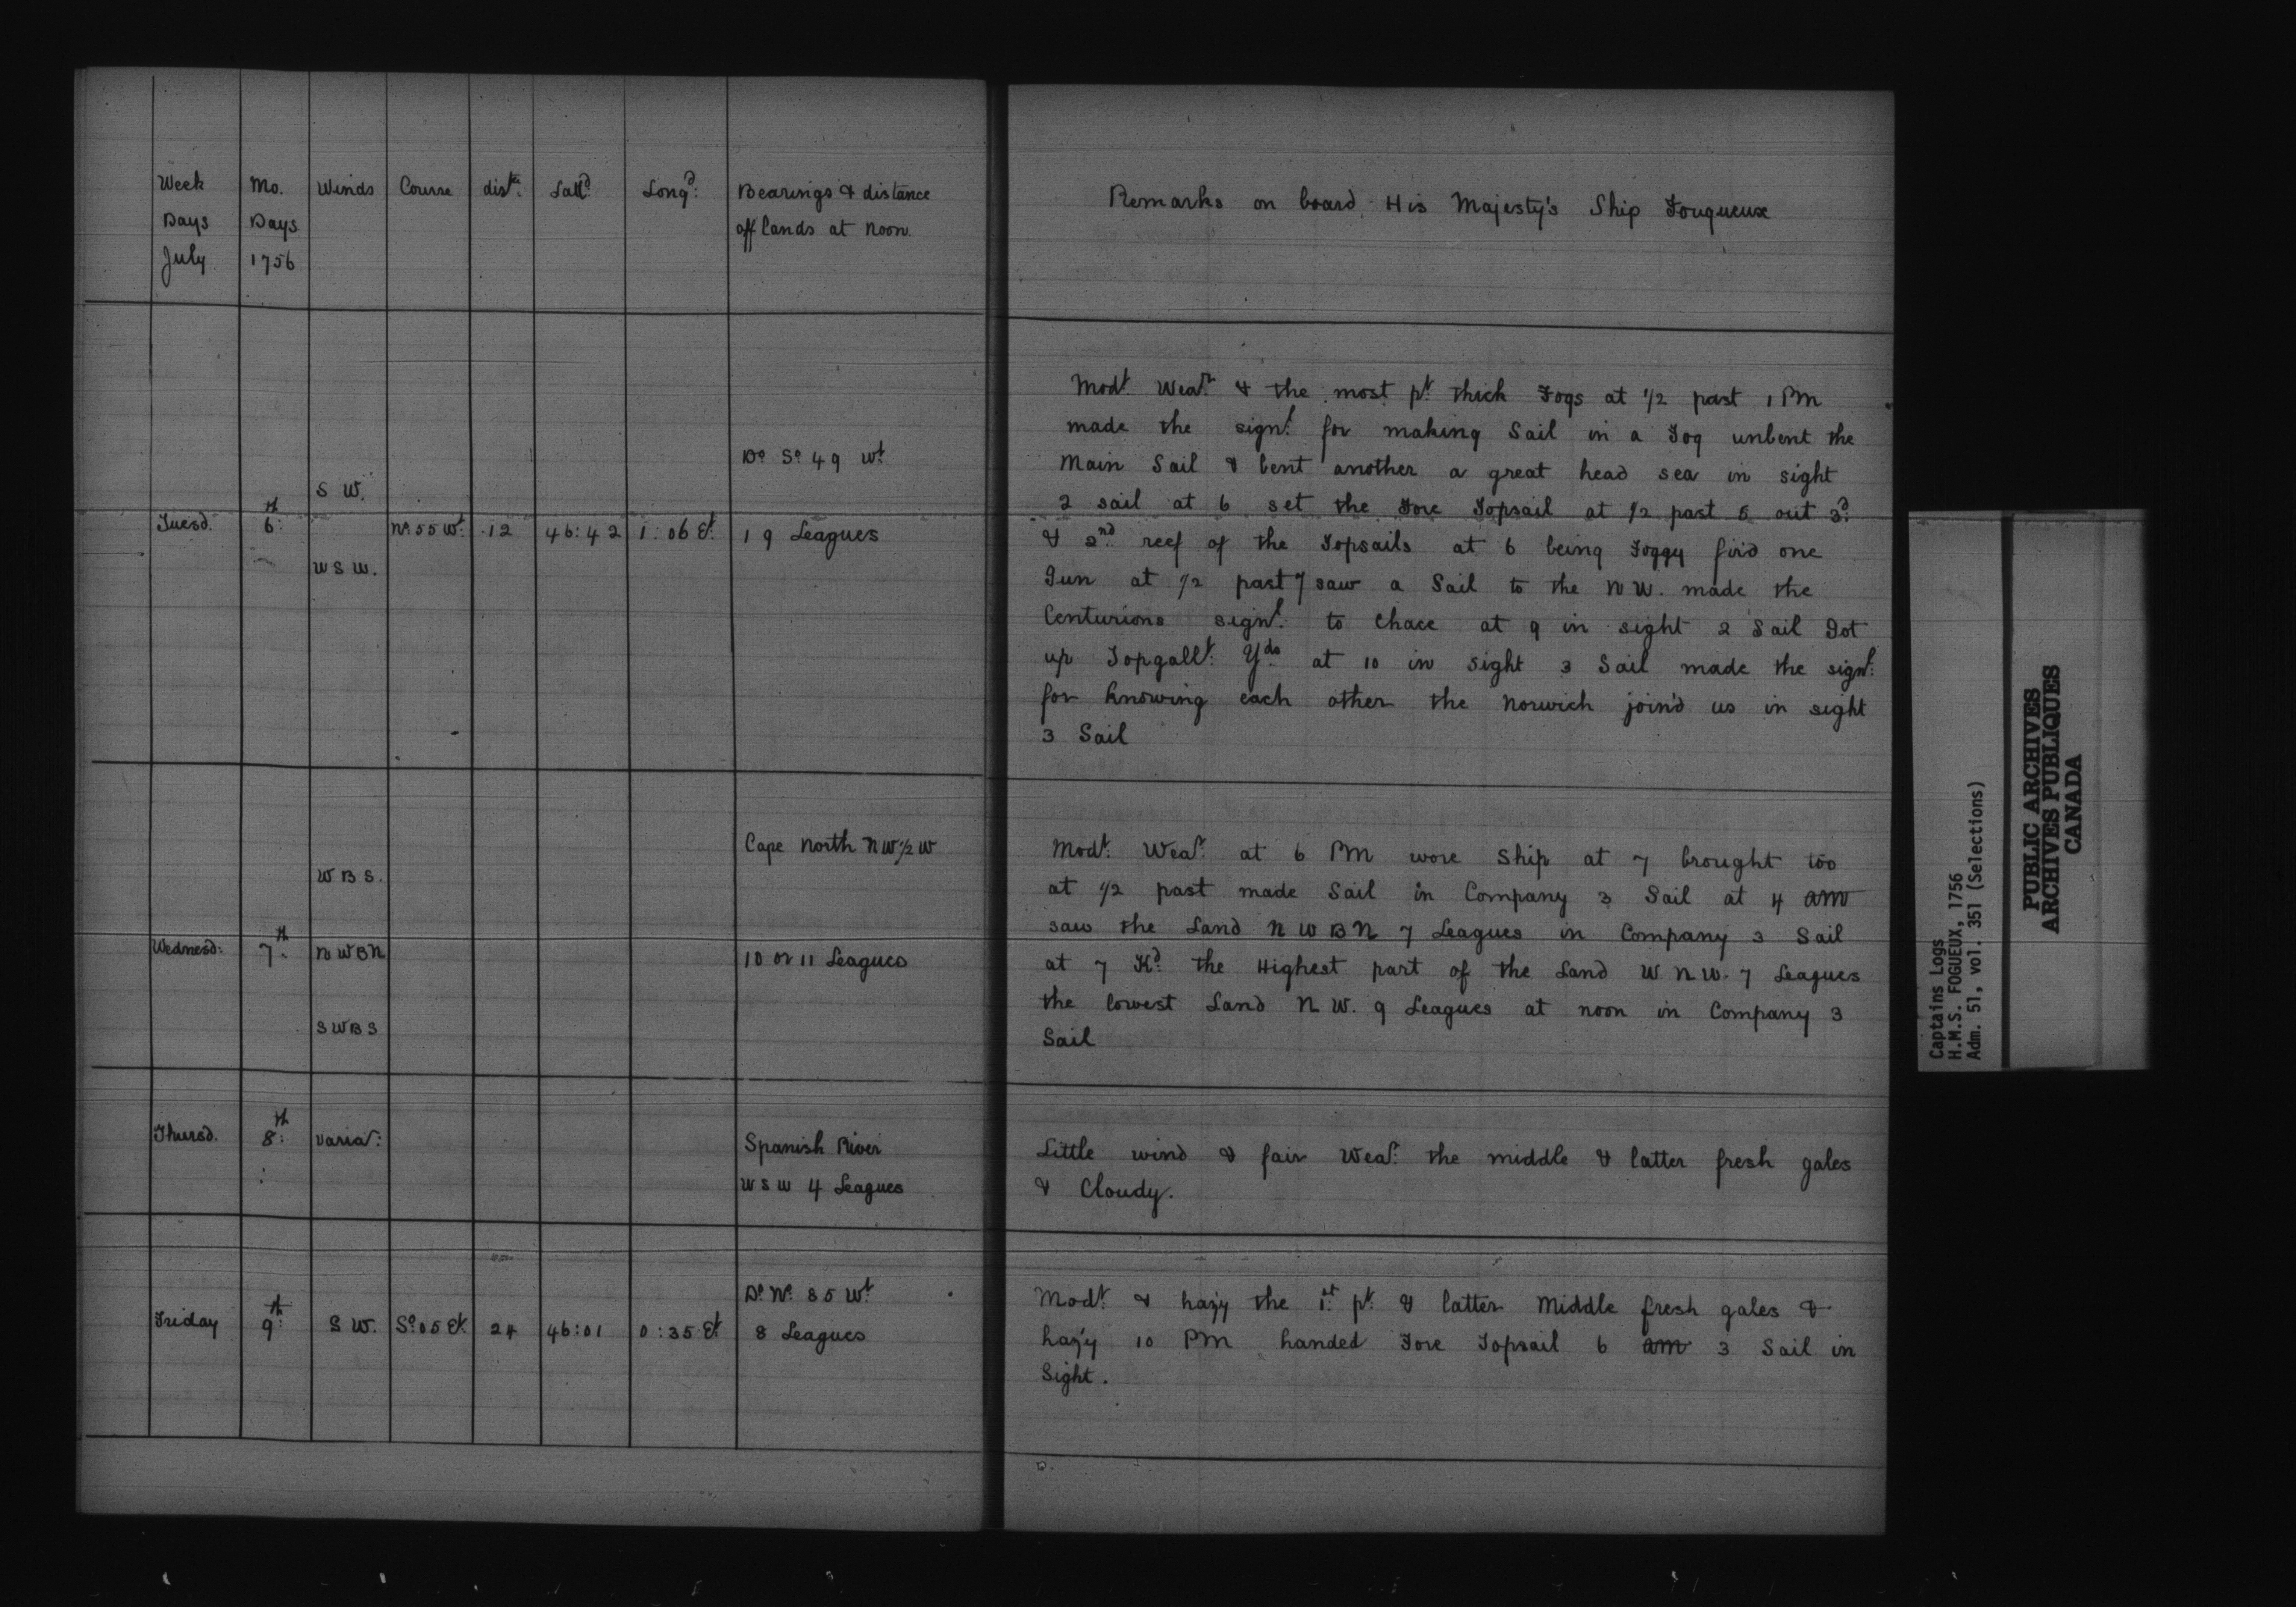 Week Mo. Winds Course distce Lattd Longd: Bearings & distance
Days Days off lands at Noon.
July 1756
Do So 49 Wt
S W.
Tuesd. 6th: No 55 Wt. 12 46:42 1:06 Et. 19 Leagues
W S W.
Cape North N W ½ W
W B S.
Wednesd: 7th. N W B N 10 or 11 Leagues
S W B S
Thursd. 8th: Variar: Spanish River
W S W 4 Leagues
Do No 85 Wt
Friday 9th: S W. So 05 Et. 24 46:01 0:35 Et 8 Leagues
Remarks on board His Majesty's Ship Fouqueux
Modt Wear & the most pt thick Fogs at ½ past 1 PM
made the signl for making Sail in a Fog unbent the
Main Sail & bent another a great head sea in sight
2 sail at 6 set the Fore Topsail at ½ past 5 out 3d:
& 2nd reef of the Topsails at 6 being Foggy fir'd one
Gun at ½ past 7 saw a Sail to the N W. made the
Centurions signl to Chace at 9 in sight 2 Sail Got
up Topgallt: Yds at 10 in sight 3 Sail made the signl:
for knowing each other the Norwich join'd us in sight
3 Sail
Modt: Wear: at 6 PM wore Ship at 7 brought too
at ½ past made Sail in Company 3 Sail at 4 am
saw the Land N W B N 7 Leagues in Company 3 Sail
at 7 the Highest part of the Land W. N W. 7 Leagues
the lowest Land N W. 9 Leagues at noon in Company 3
Sail
Little wind & fair Wear: the middle & latter fresh gales
& Cloudy.
Modt: & hazy the 1st: pt: & latter Middle fresh gales &
hazy 10 PM handed Fore Topsail 6 am 3 Sail in
Sight.
Captains Logs
H.M.S. FOGUEUX, 1756
Adm. 51, vol. 351 (Selections)
PUBLIC ARCHIVES
ARCHIVES PUBLIQUES
CANADA